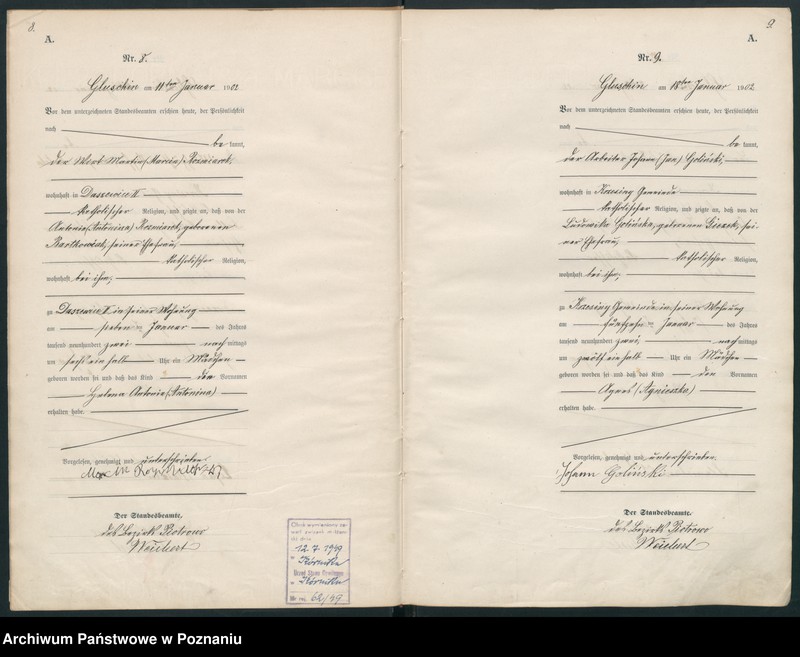 8.
A.
Nr. 8.
Gluschin am 11ten Januar 1902
Vor dem unterzeichneten Standesbeamten erschien heute, der Persönlichkeit
nach
be kannt,
der Wirt Martin (Marcin)
wohnhaft in Daszewice II
katholischer Religion, und zeigte an, daß von der
Antonie (Antonina) geborenen
Bartkowiak, seiner Ehefrau,
katholischer Religion,
wohnhaft bei ihm,
zu Daszewice II in seiner Wohnung
am sieben ten Januar des Jahres
tausend neunhundert zwei nach mittags
um sechs ein halb Uhr ein Mädchen
geboren worden sei und daß das Kind den Vornamen
Helena Antonie (Antonina)
erhalten habe.
Vorgelesen, genehmigt und unterschrieben
Der Standesbeamte,
des Bezirks Piotrowo
Weichert
9.
A.
Nr. 9.
Gluschin am 18ten Januar 1902
Vor dem unterzeichneten Standesbeamten erschien heute, der Persönlichkeit
nach
be kannt,
der Arbeiter Johann (Jan) Goliński,
wohnhaft in Krzesiny Gemeinde
katholischer Religion, und zeigte an, daß von der
Ludowika Golińska, geborenen sei-
ner Ehefrau,
katholischer Religion,
wohnhaft bei ihm,
zu Krzesiny Gemeinde in seiner Wohnung
am fünfzehn ten Januar des Jahres
tausend neunhundert zwei, nach mittags
um zwölf ein halb Uhr ein Mädchen
geboren worden sei und daß das Kind den Vornamen
Agnes (Agnieszka)
erhalten habe.
Vorgelesen, genehmigt und unterschrieben.
Johann Goliński
Der Standesbeamte,
des Bezirks Piotrowo
Weichert
12.7.1949
Kórniku
Urząd Stanu Cywilnego
w Kórniku
62/49
Archiwum Państwowe w Poznaniu